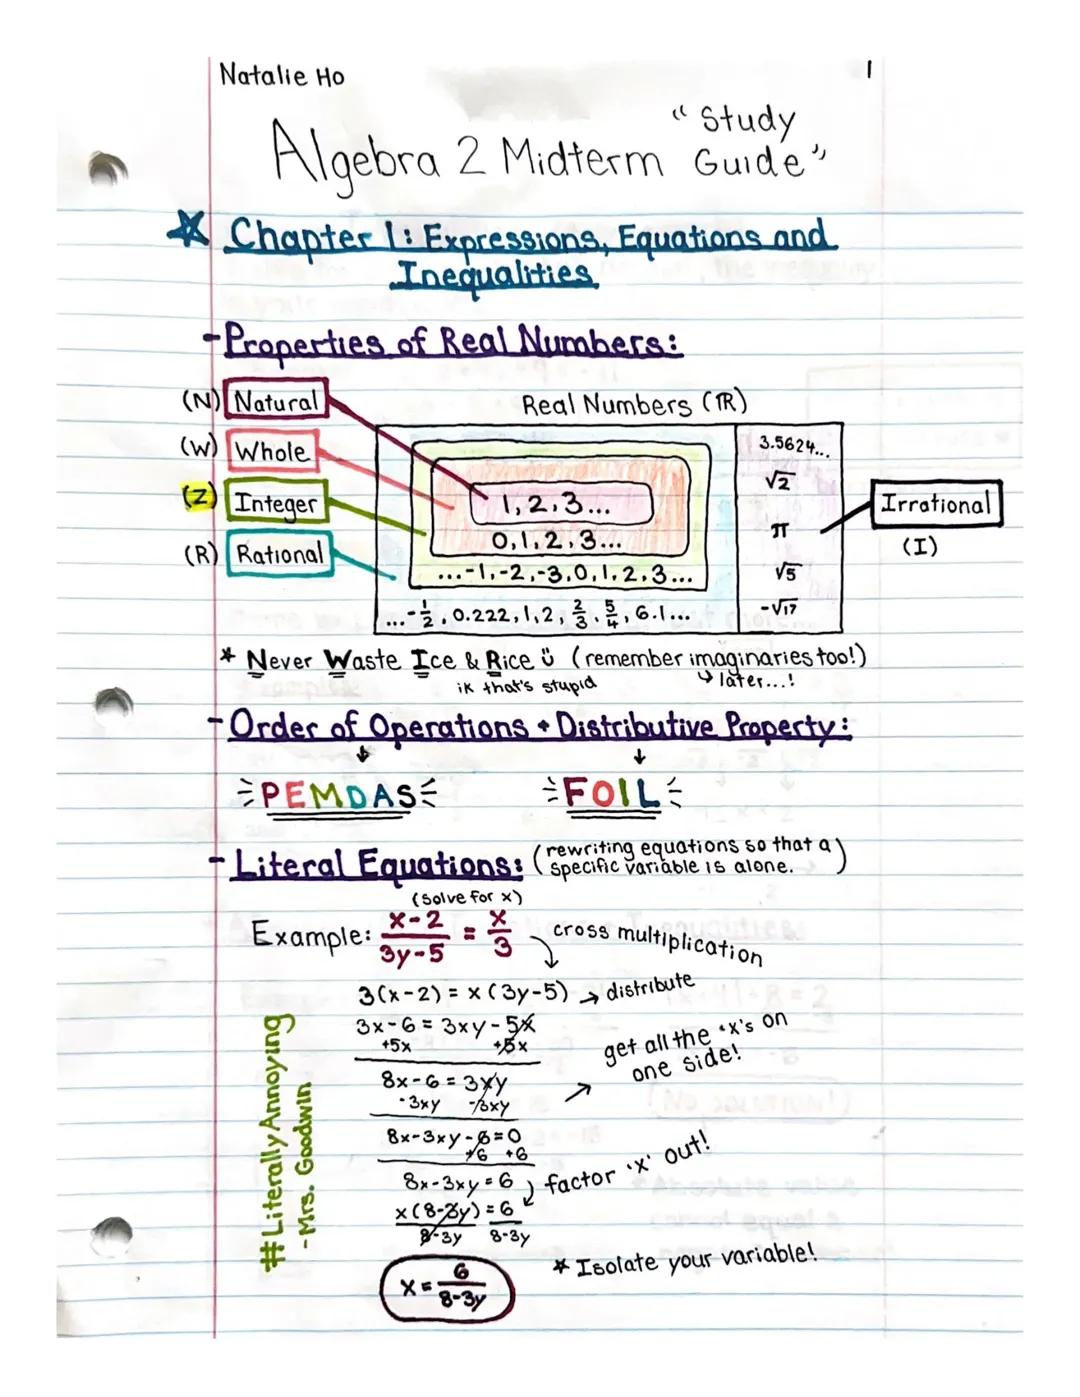 Natalie Ho
1
Algebra 2 Midterm "Study Guide"
Chapter 1: Expressions, Equations and
Inequalities
-Properties of Real Numbers:
(N) Natural
Real Numbers (ℝ)
(W) Whole
(Z) Integer
(R) Rational
1, 2, 3...
0, 1, 2, 3...
...-1, -2, -3, 0, 1, 2, 3...
... -1/2, 0.222, 1, 2, 2/3, 5/4, 6.1...
3.5624...
√2
π
√5
-√17
Irrational
(I)
* Never Waste Ice & Rice ü (remember imaginaries too!)
ik that's stupid
↳ later...!
-Order of Operations + Distributive Property:
↓ ↓
PEMDAS FOIL
-Literal Equations: (rewriting equations so that a
specific variable is alone.)
(solve for x)
Example: x-2/3y-5 = x/3
cross multiplication
3(x-2) = x(3y-5) → distribute
3x-6 = 3xy-5x
+5x +5x
get all the 'x's on
one side!
8x-6 = 3xy
-3xy -3xy
8x-3xy-6=0
+6 +6
8x-3xy=6
factor 'x' out!
x(8-3y)=6
8-3y 8-3y
* Isolate your variable!
x = 6/8-3y
#LiterallyAnnoying
-Mrs. Goodwin